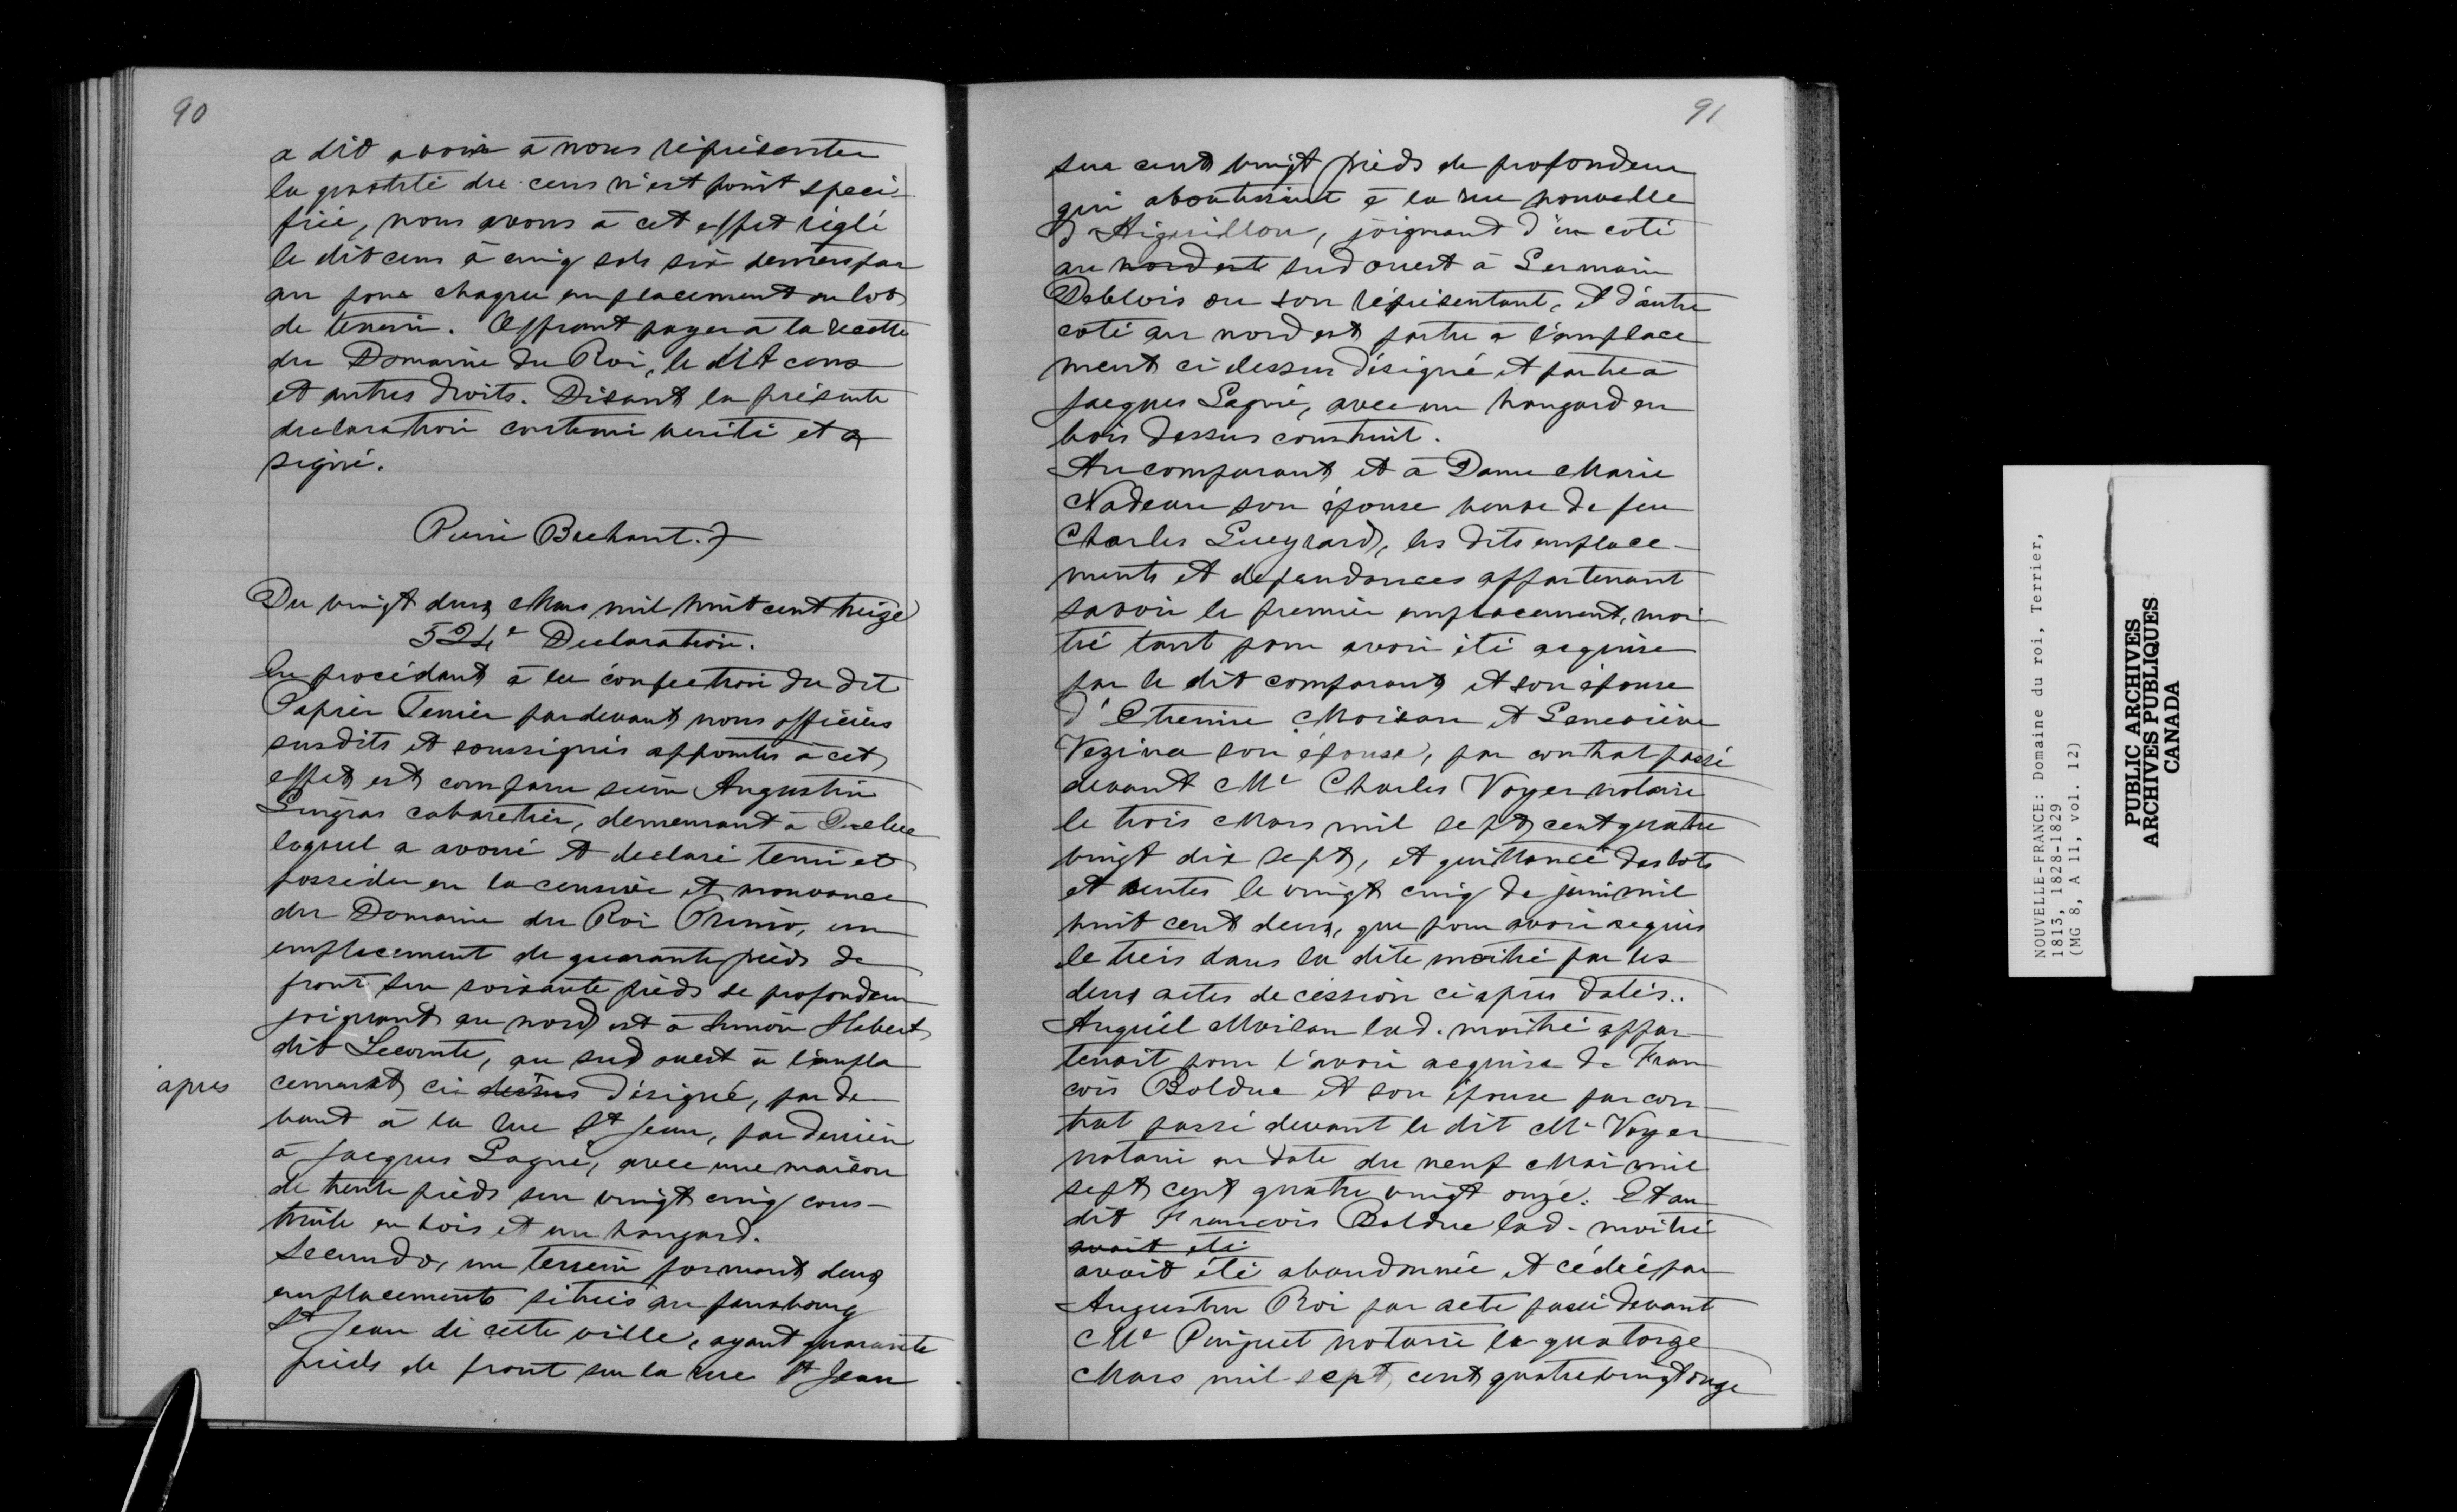 90
a dit avoir à nous réprésenter
la quotité du cens n'est point speci-
fiée, nous avons à cet effet réglé
le dit cens à cinq sols six deniers par
an pour chaque emplacement ou lot
de terrein. Offrant payer à la recette
du Domaine du Roi, le dit cens
et autres droits. Disant la présente
declaration contenir verité et a
signé.
Pierre Bechant.
Du vingt deux Mars mil huit cent treize
524e Declaration.
En procédant à la confection du dit
Papier Terrier pardevant nous officiers
susdits et soussignés appointés à cet
effet est comparu sieur Augustin
Gingras cabaretier, demeurant à Quebec
lequel a avoué et declaré tenir et
posseder en la censive et mouvance
du Domaine du Roi Primo, un
emplacement de quarante pieds de
front sur soixante pieds de profondeur
joignant au nord est à Simon Hebert
dit Lecomte, au sud ouest à l'empla
après
cement ci dessus désigné, par de
vant à la rue St Jean, par derrière
à Jacques Gagné, avec une maison
de trente pieds sur vingt cinq cons-
truite en bois et un hangard.
Secundo, un terrein formant deux
emplacements situés au fauxbourg
St Jean de cette ville, ayant quarante
pieds de front sur la rue St Jean
91
sur cent vingt pieds de profondeur
qui aboutissent à la rue nouvelle
d'Aiguillon, joignant d'un coté
au nord est sud ouest à Germain
Deblois ou son réprésentant, et d'autre
coté au nord est partie à l'emplace
ment ci dessus désigné et partie à
Jacques Gagné, avec un hangard en
bois dessus construit.
Au comparant et à Dame Marie
Nadeau son épouse veuve de feu
Charles les dits emplace-
ments et dependances appartenant
savoir le premier emplacement, moi-
tié tant pour avoir été acquise
par le dit comparant et son épouse
d'Etienne Moisan et Geneviève
Vezina son épouse, par contrat passé
devant Me Charles Voyer notaire
le trois Mars mil sept cent quatre
vingt dix sept, et quittance des lots
et ventes le vingt cinq de juin mil
huit cent deux, que pour avoir acquis
le tiers dans la dite moitié par les
deux actes de cession ci après datés.
Auquel Moisan lad. moitié appar
tenoit pour l'avoir acquise de Fran
cois Bolduc et son épouse par con-
trat passé devant le dit Me Voyer
notaire en date du neuf Mai mil
sept cent quatre vingt onze. Et au
dit François Bolduc lad. moitié
avoit été
avoit été abandonnée et cédée par
Augustin Roi par acte passé devant
Me Pinguet notaire le quatorze
Mars mil sept cent quatre vingt onze
NOUVELLE-FRANCE: Domaine du roi, Terrier,
1813, 1828-1829
(MG 8, A 11, vol. 12)
PUBLIC ARCHIVES
ARCHIVES PUBLIQUES
CANADA